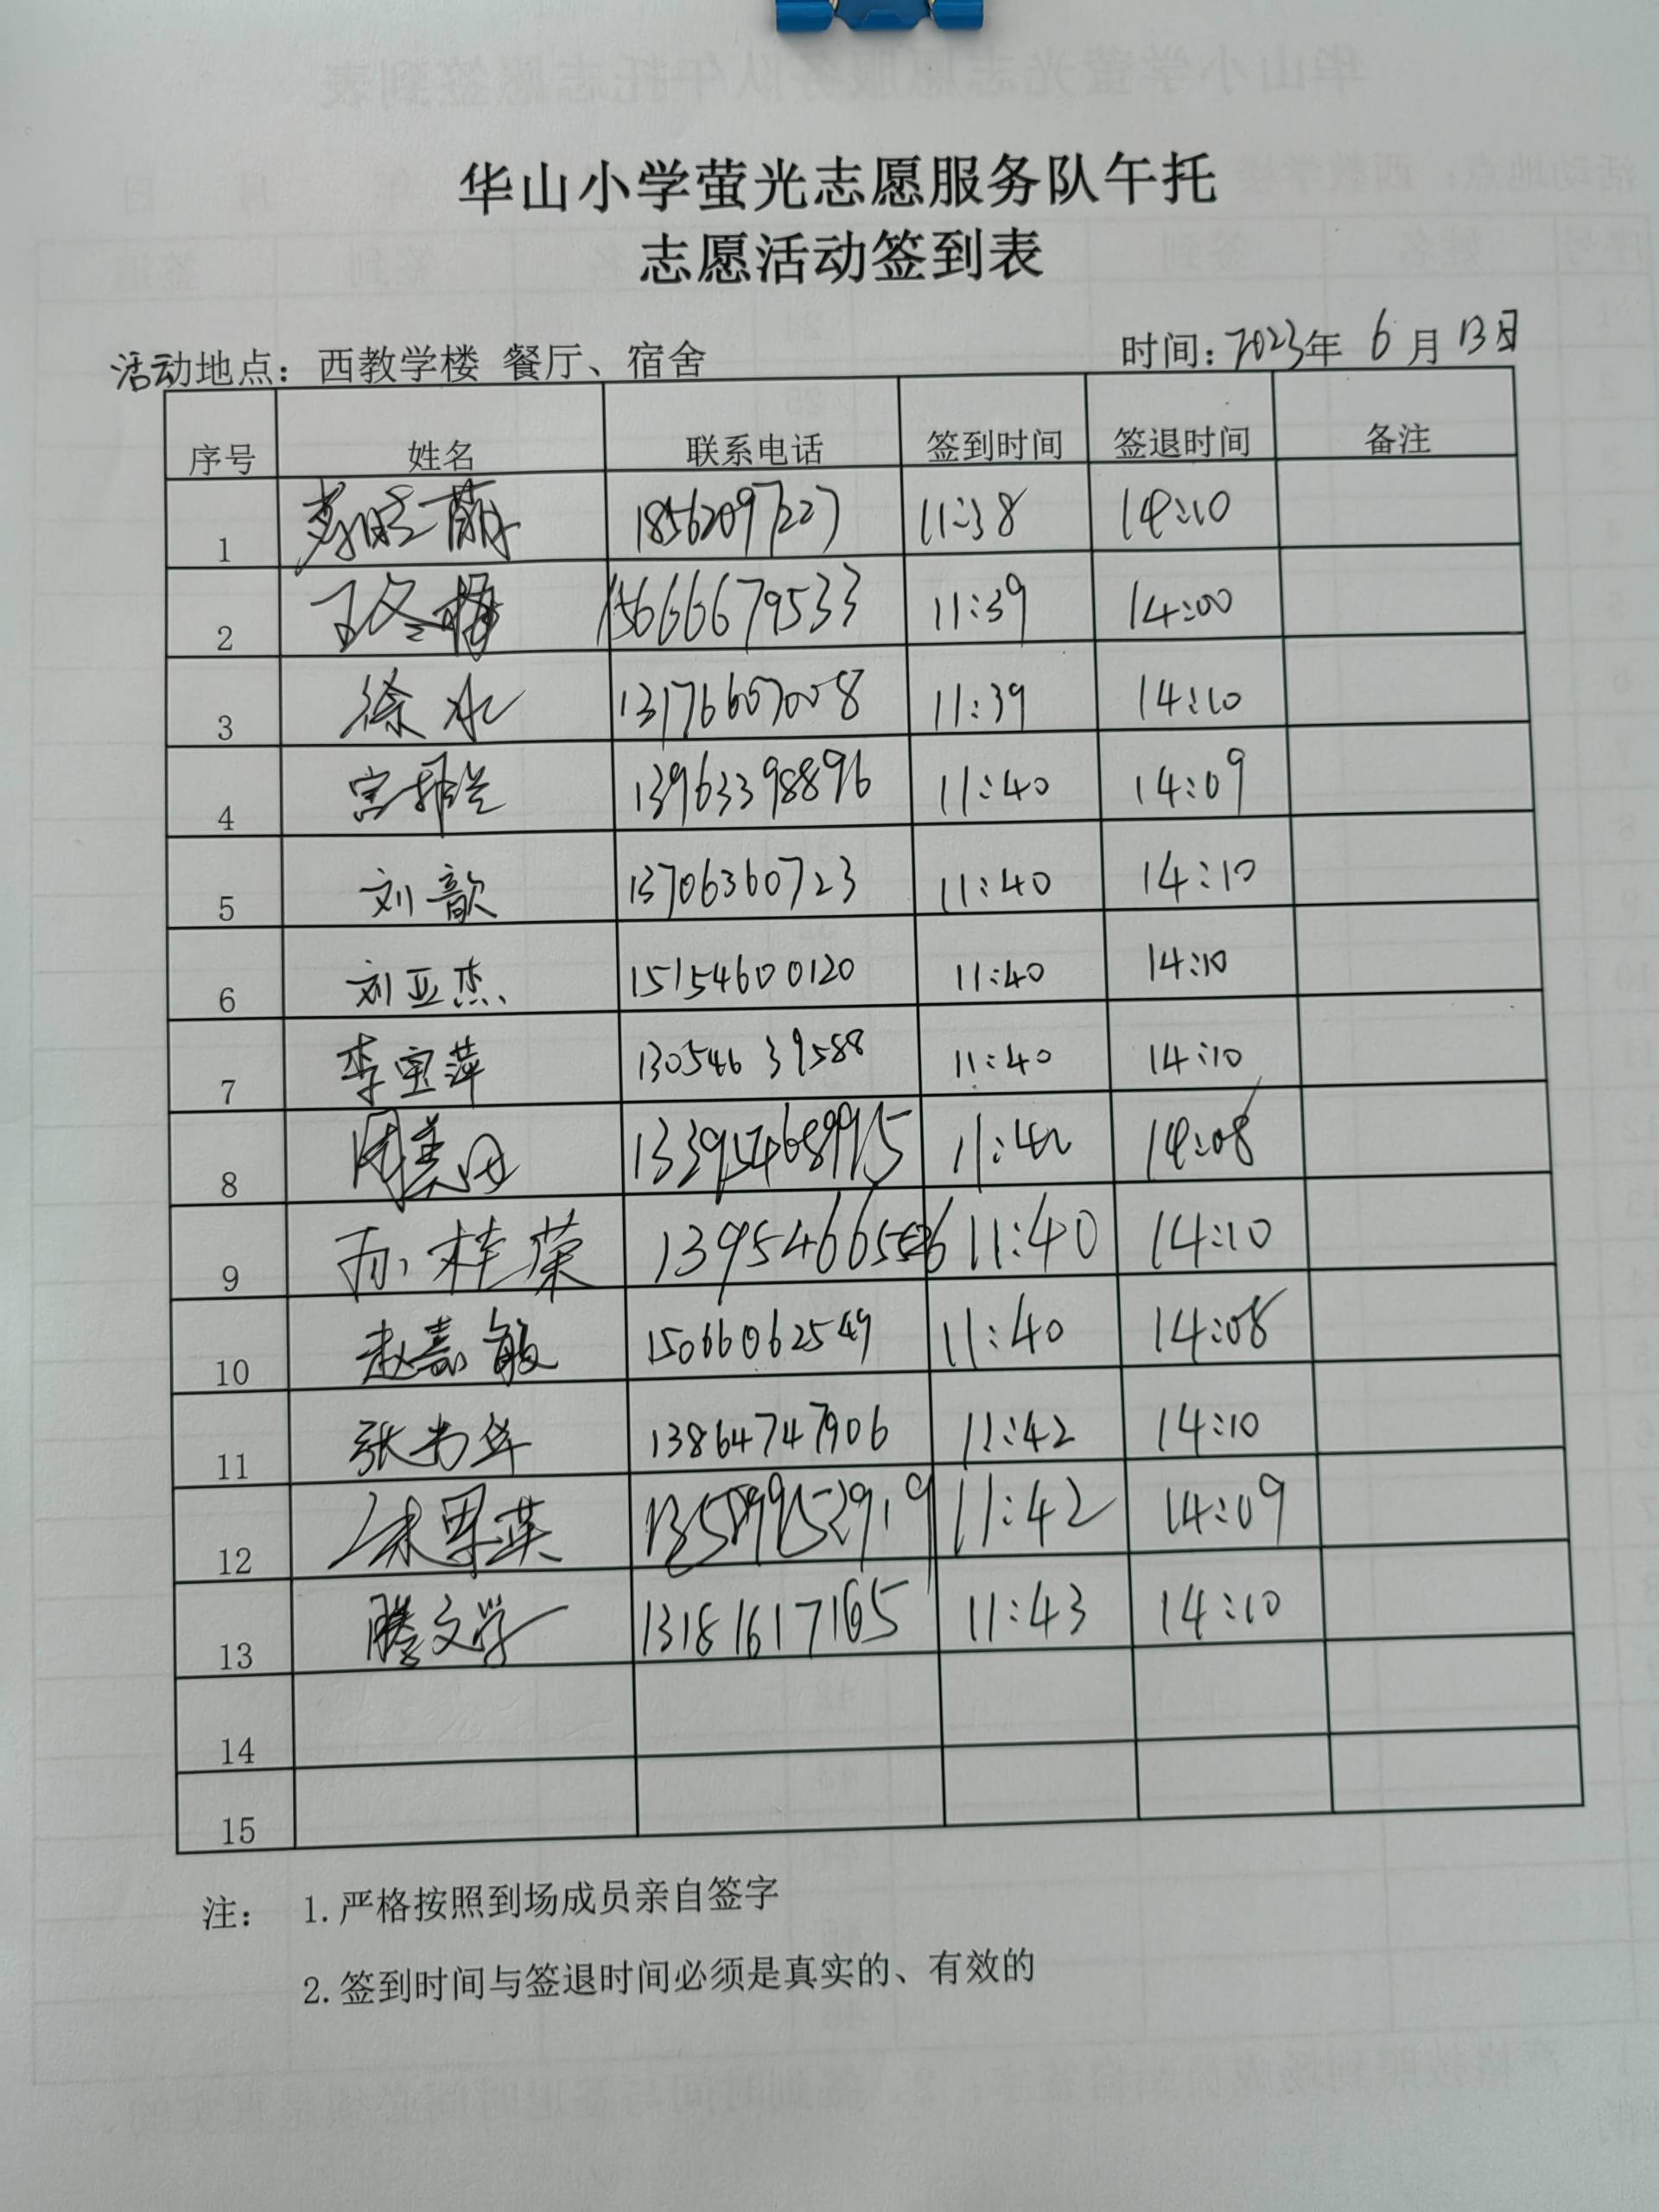 华山小学萤光志愿服务队午托
志愿活动签到表
活动地点：西教学楼 餐厅、宿舍 时间：2023年 6 月 13日
序号 姓名 联系电话 签到时间 签退时间 备注
1 18562097227 11:38 14:10
2 王冬梅 15666679533 11:39 14:00
3 徐冰 13176607008 11:39 14:10
4 13963398896 11:40 14:09
5 刘歆 13706360723 11:40 14:10
6 刘亚杰 15154600120 11:40 14:10
7 李宝萍 13054639588 11:40 14:10
8 周美田 13395468995 11:40 14:08
9 孙桂荣 11:40 14:10
10 赵嘉敏 15066062549 11:40 14:08
11 张书华 13864747906 11:42 14:10
12 13589952919 11:42 14:09
13 滕文学 13181617165 11:43 14:10
14
15
注： 1.严格按照到场成员亲自签字
2.签到时间与签退时间必须是真实的、有效的